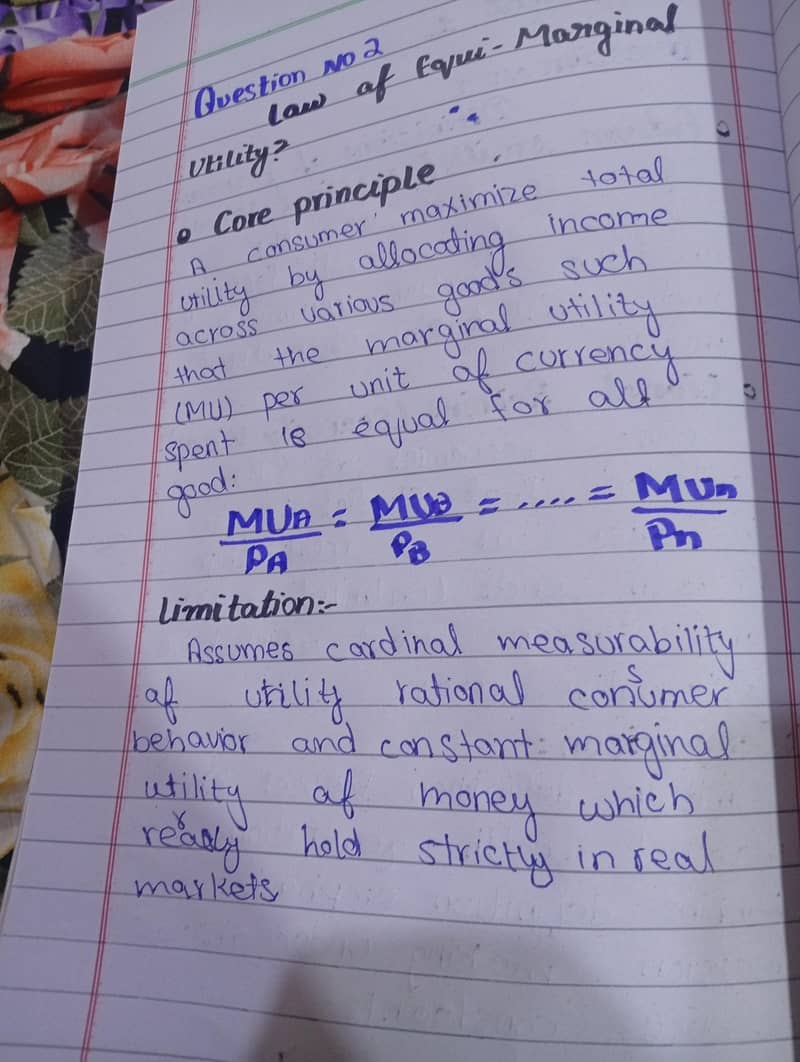 Question No 2
Law of Equi-Marginal
Utility?
• Core principle
A consumer maximize total
utility by allocating income
across various goods such
that the marginal utility
(MU) per unit of currency
spent is equal for all
good:
MUA/PA = MUB/PB = .... = MUn/Pn
Limitation:-
Assumes cardinal measurability
of utility rational consumer
behavior and constant marginal
utility of money which
hold strictly in real
markets